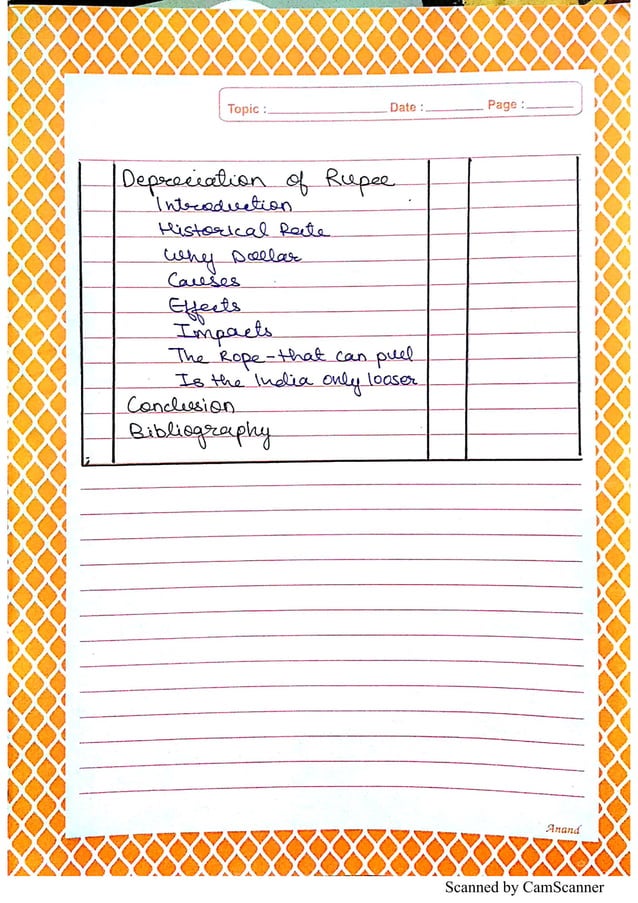 Topic : Date : Page :
Depreciation of Rupee
Introduction
Historical Rate
Why Dollar
Causes
Effects
Impacts
The Rope - that can pull
Is the India only looser
Conclusion
Bibliography
Anand
Scanned by CamScanner